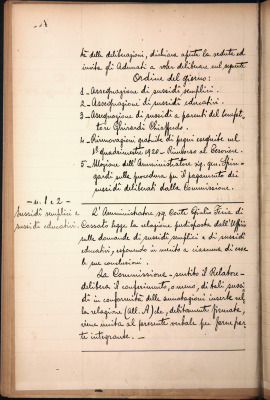 tà delle deliberazioni, dichiara aperta la seduta ed
invita gli Adunati a voler deliberare sul seguente
Ordine del giorno:
1 - Assegnazione di sussidi semplici.
2 - Assegnazione di sussidi educativi.
3 - Assegnazione di sussidi a parenti del benefat-
tore Ghirardi Chiaffredo.
4 - Rinnovazioni gratuite di pegni eseguite nel
1° quadrimestre 1920. Rimborso al Tesoriere.
5 - Mozione dell'Amministratore sig. gen.
sulla procedura pel pagamento dei
sussidi deliberati dalla Commissione.
- n. 1 e 2 -
Sussidi semplici e
sussidi educativi.
L'Amministratore sig. Conte Giulio di
Cossato legge la relazione predisposta dall'Uffizio
sulle domande di sussidi semplici e di sussidi
educativi, esponendo in merito a ciascuna di esse
le sue conclusioni.
La Commissione - sentito il Relatore -
delibera il conferimento, o meno, di tali sussi
di in conformità delle annotazioni inserte nel
la relazione (all. A) che, debitamente firmata,
viene unita al presente verbale per farne par
te integrante. -